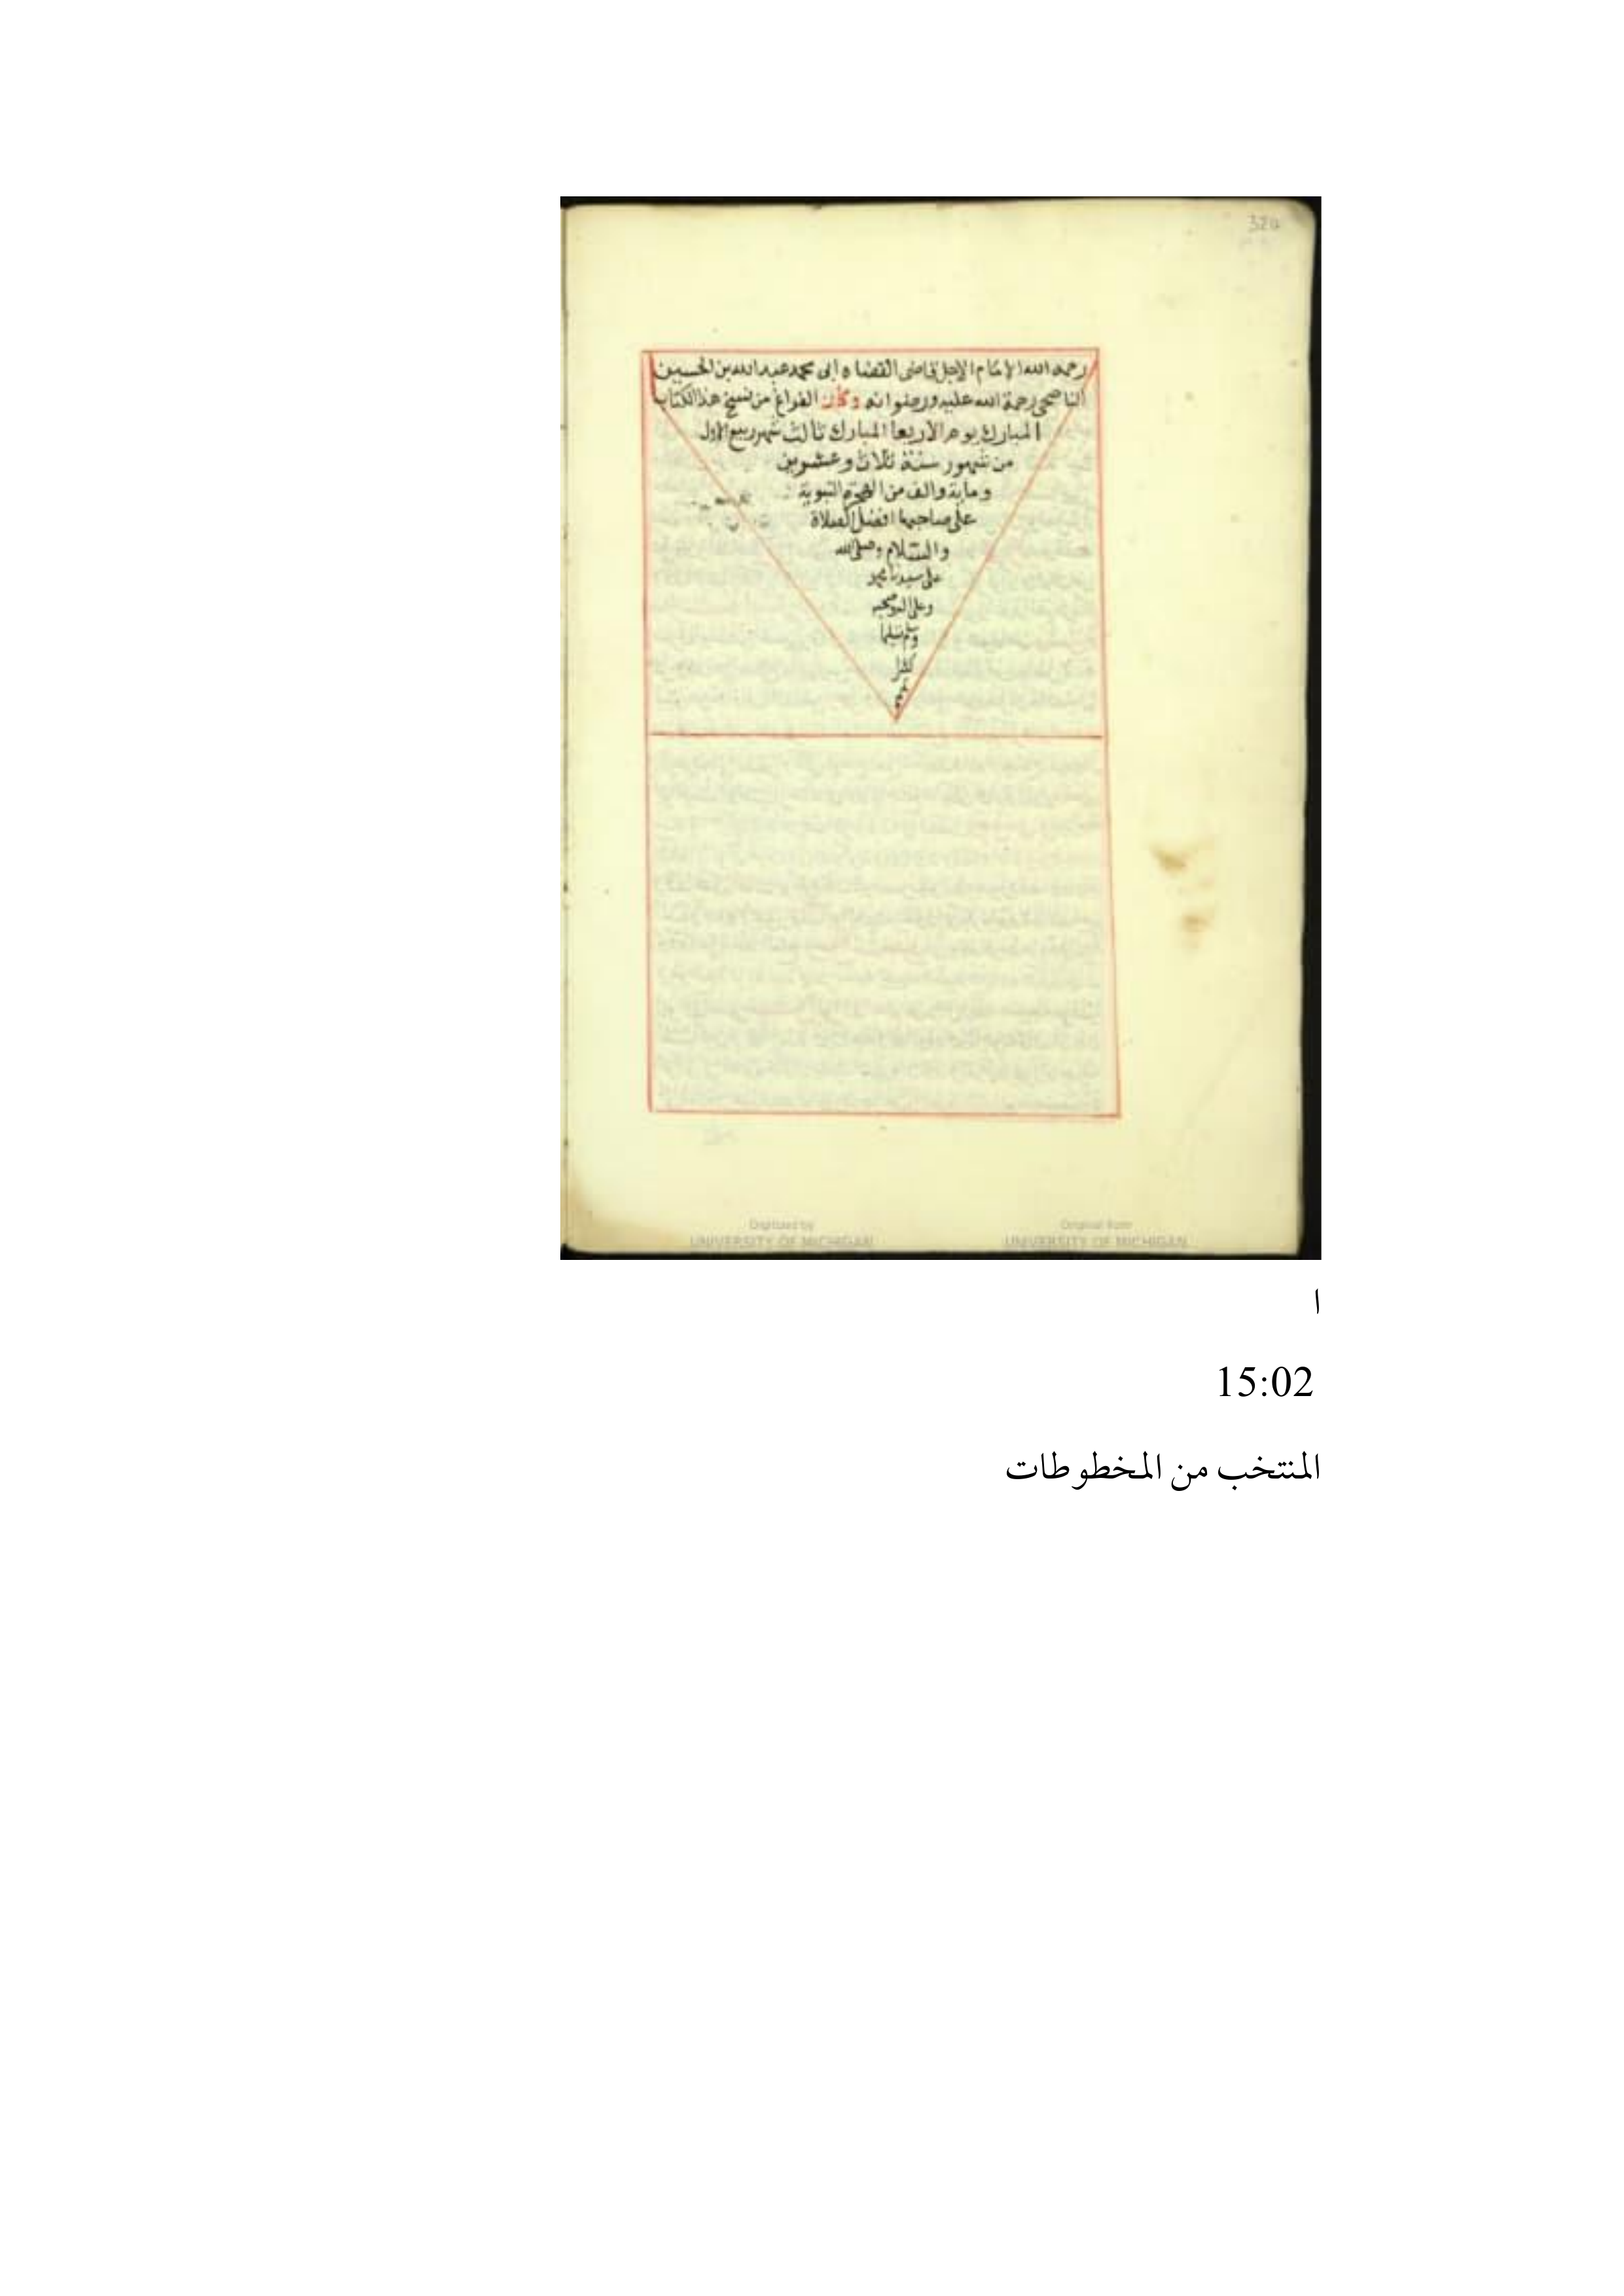 324
رحمه الله الإمام الاجل قاضى القضاه ابى محمد عبدالله بن الحسين
الناصحى رحمة الله عليه ورضوانه وكان الفراغ من نسخ هذا الكتاب
المبارك يوم الاربعا المبارك ثالث شهر ربيع الاول
من شهور سنة ثلاث وعشرين
وماية والف من الهجرة النبوية
على صاحبها افضل الصلاة
والسلام وصلى الله
على سيدنا محمد
وعلى اله وصحبه
وسلم تسليما
كثيرا
Digitized by
UNIVERSITY OF MICHIGAN
Original from
UNIVERSITY OF MICHIGAN
ا
15:02
المنتخب من المخطوطات